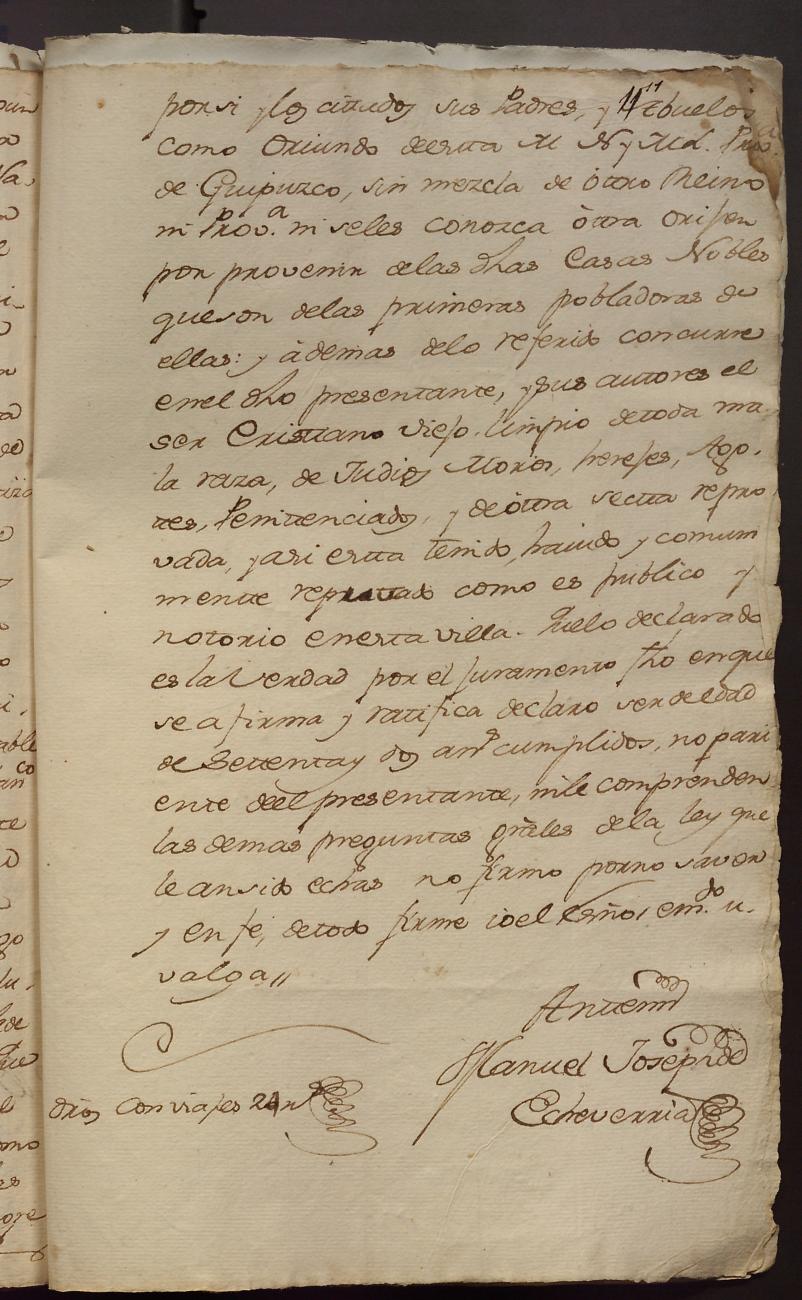 por si y los cittados sus Padres, y Abuelos
11
como Oriundo deestta M. N. y M. L. Prov.a
de Guipuzco, sin mezcla de òttro Reino
ni Prov.a ni seles conozca òttra orijen
por provenir delas dhas Casas Nobles
queson delas primeras pobladoras de
ellas: y àdemas delo referido concurre
enel dho presentante, y sus auttores el
ser Cristtiano viejo limpio detoda ma
la raza, de Judios Moros, herejes, Ago
ttes, Penittenciados, y deòttra sectta repro
vada, y asi estta ttenido, havido y comun
mentte reputtado como es publico y
notorio enesta villa. Quelo declarado
es la Verdad por el juramento fho enque
se afirma y rattifica declaro ser de edad
de Settenta y dos an.s cumplidos, no pari
ente deel presentante, nile comprenden
las demas preguntas grãles dela ley que
le an sido echas no firmo porno saver
y en fe, detodo firme io el Esño, em.do u.
valga //
Antemi
Manuel Joseph de
Echeverria
dros con viajes 24 rs